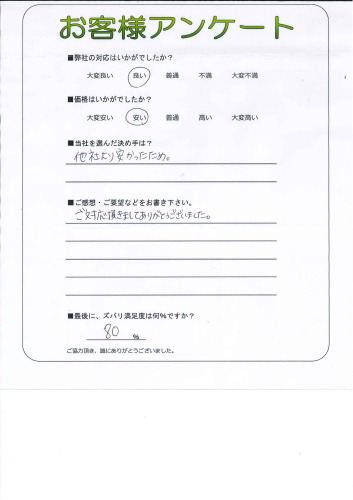 お客様アンケート
■弊社の対応はいかがでしたか？
大変良い 良い 普通 不満 大変不満
■価格はいかがでしたか？
大変安い 安い 普通 高い 大変高い
■当社を選んだ決め手は？
他社より安かったため。
■ご感想・ご要望などをお書き下さい。
ご対応頂きましてありがとうございました。
■最後に、ズバリ満足度は何%ですか？
80 %
ご協力頂き、誠にありがとうございました。